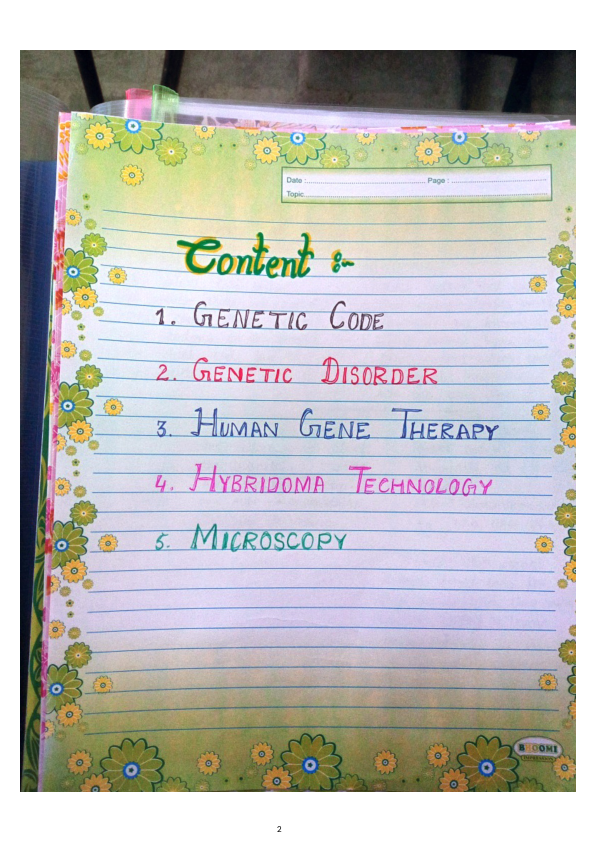 Date :.......................................................... Page : ..............................................
Topic....................................................................................................................
Content :-
1. GENETIC CODE
2. GENETIC DISORDER
3. HUMAN GENE THERAPY
4. HYBRIDOMA TECHNOLOGY
5. MICROSCOPY
BHOOMI
2